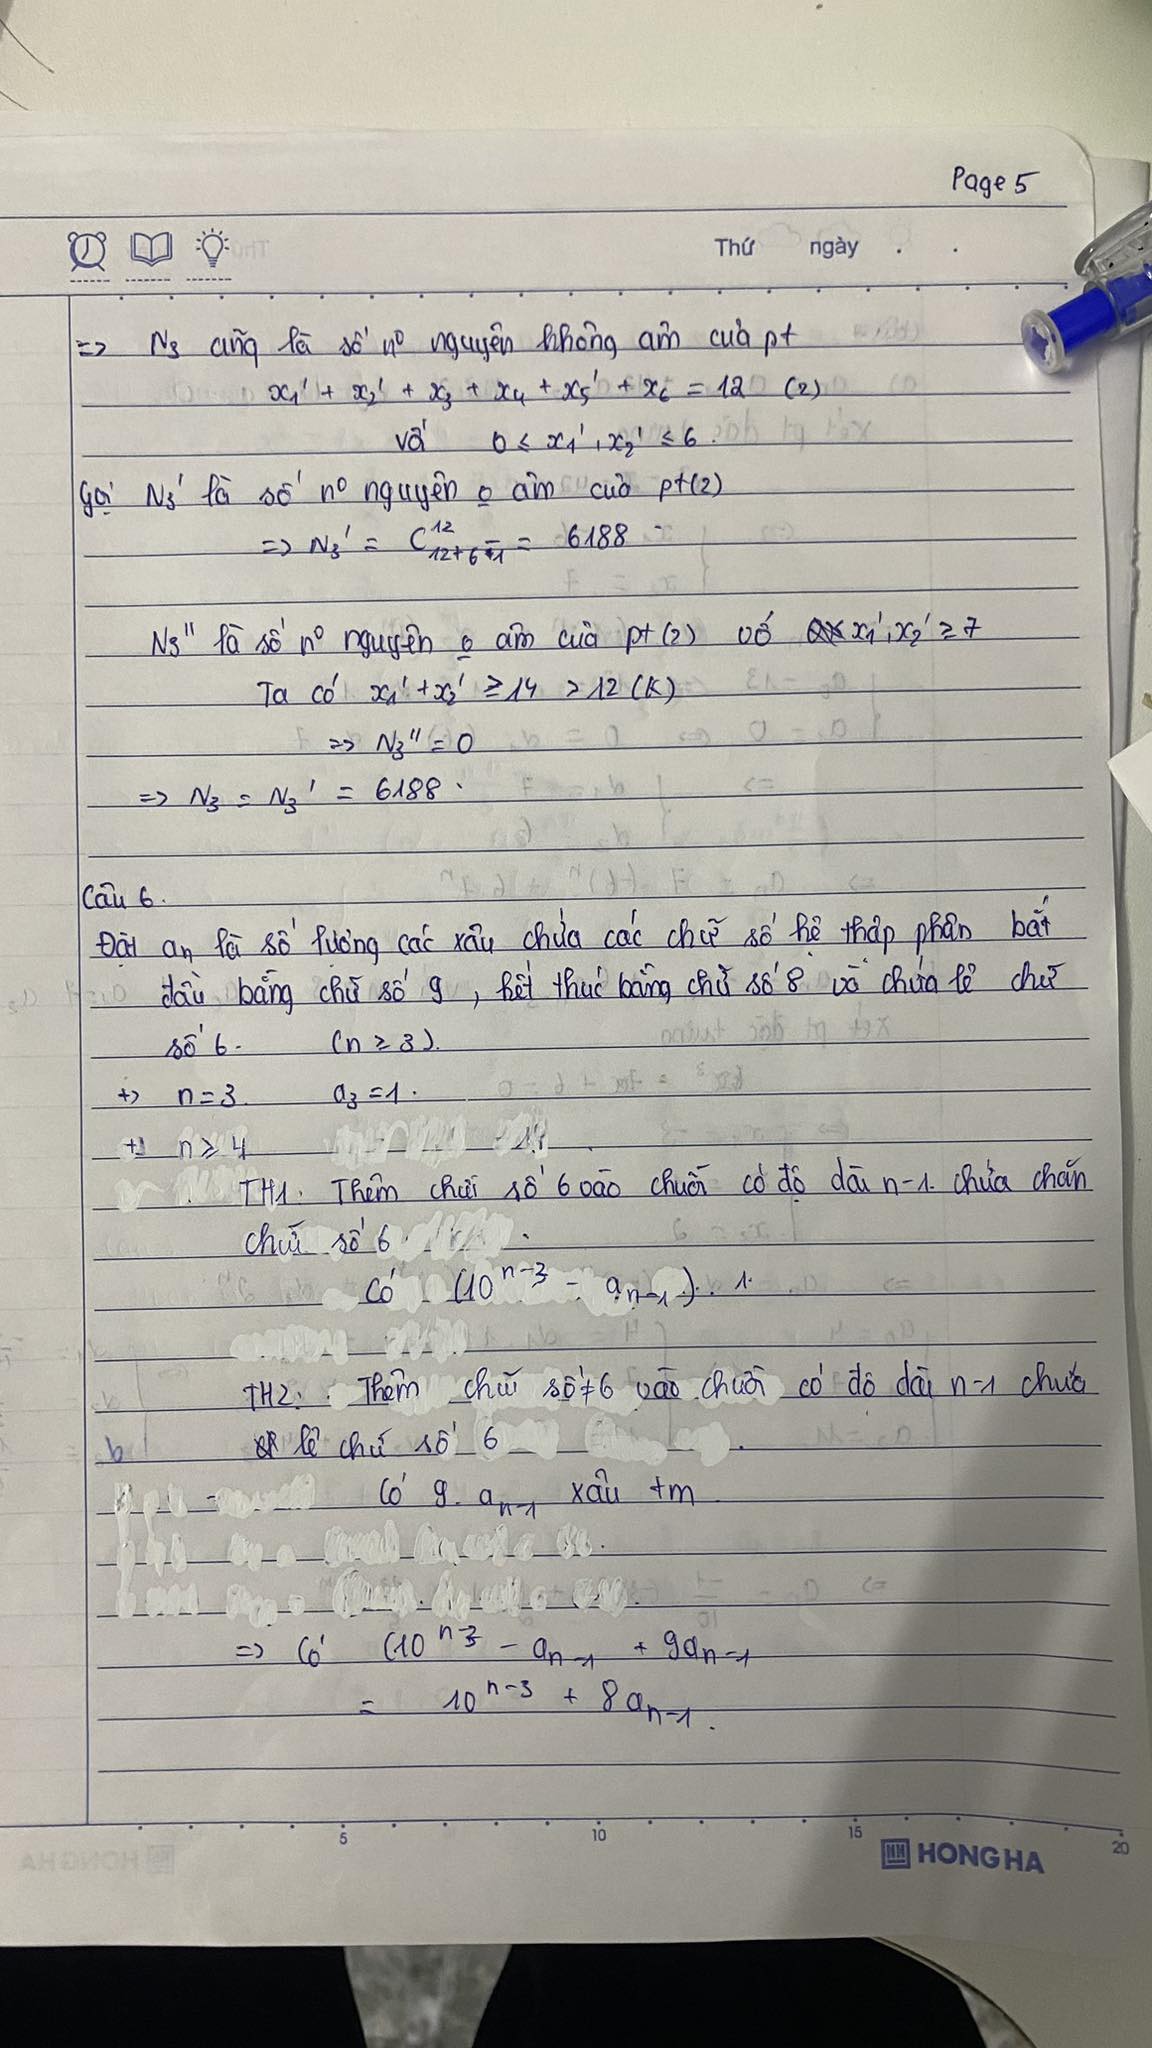 Page 5
Thứ ngày . .
=> N3 cũng là số n⁰ nguyên không âm của pt
x₁' + x₂' + x₃ + x₄ + x₅' + x₆ = 12 (2)
với 0 ≤ x₁', x₂' ≤ 6.
Gọi N₃' là số n⁰ nguyên o âm của pt(2)
=> N₃' = C¹²₁₂₊₆₋₁ = 6188
N₃'' là số n⁰ nguyên o âm của pt(2) với x₁', x₂' ≥ 7
Ta có x₁' + x₂' ≥ 14 > 12 (K)
=> N₃'' = 0
=> N₃ = N₃' = 6188.
Câu 6.
Đặt an là số lượng các xâu chứa các chữ số hệ thập phân bắt
đầu bằng chữ số 9, kết thúc bằng chữ số 8 và chứa lẻ chữ
số 6. (n ≥ 3).
+> n = 3 a₃ = 1.
+> n ≥ 4
TH1. Thêm chữ số 6 vào chuỗi có độ dài n-1 chứa chẵn
chữ số 6.
Có (10ⁿ⁻³ - aₙ₋₁). 1.
TH2: Thêm chữ số ≠ 6 vào chuỗi có độ dài n-1 chứa
lẻ chữ số 6.
Có 9. aₙ₋₁ xâu tm
=> Có (10ⁿ⁻³ - aₙ₋₁ + 9aₙ₋₁
= 10ⁿ⁻³ + 8aₙ₋₁.
5 10 15 20
HONG HA